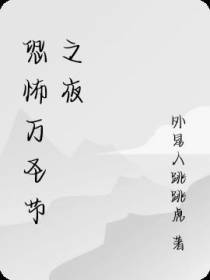 恐怖万圣节
之夜
外星人跳跳虎 著